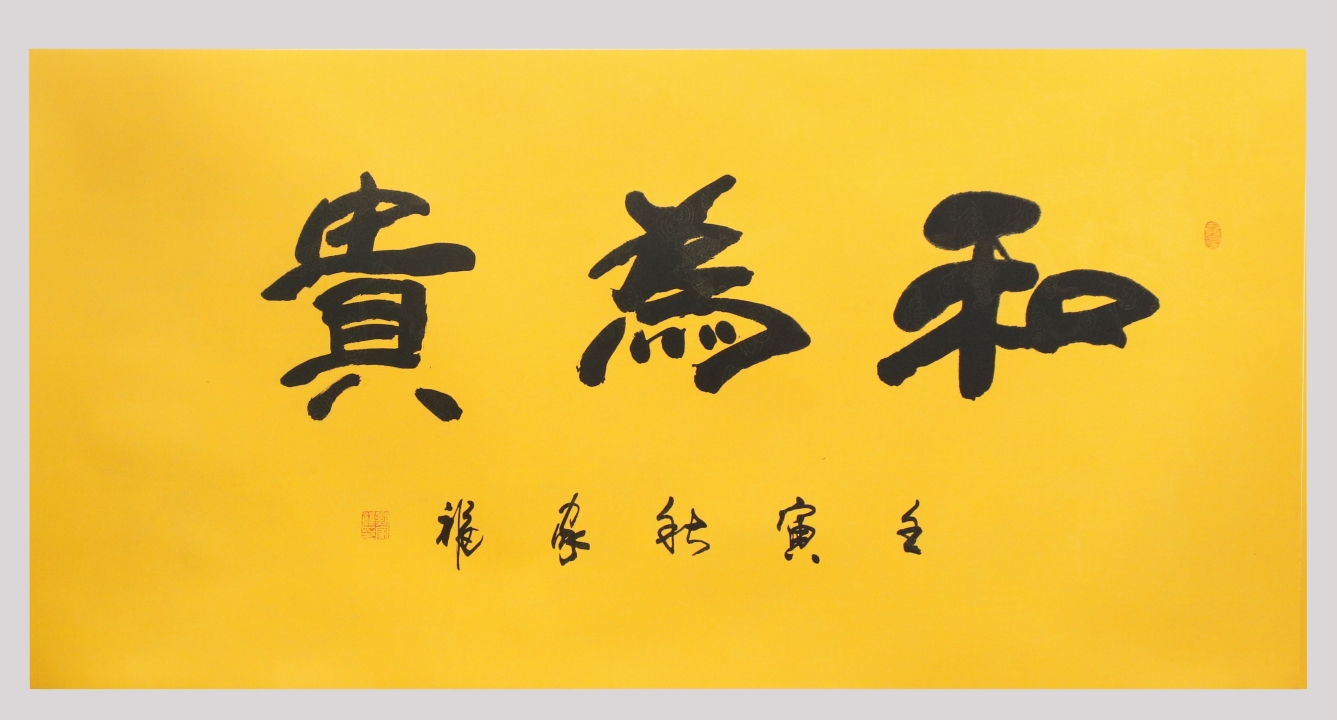 和為貴
壬寅秋家福